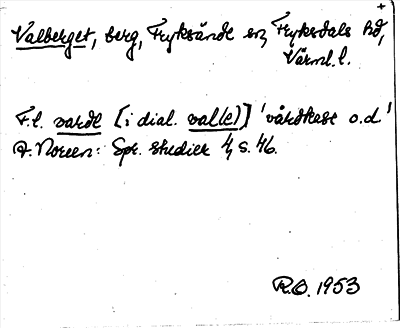 +
Valberget, berg, Fryksände sn, Fryksdals hd,
Värml. l.
F.l. varde [i dial. valle)] 'vårdkase o.d.'
A. Noreen: Spr. studier 4, s. 46.
R.O. 1953